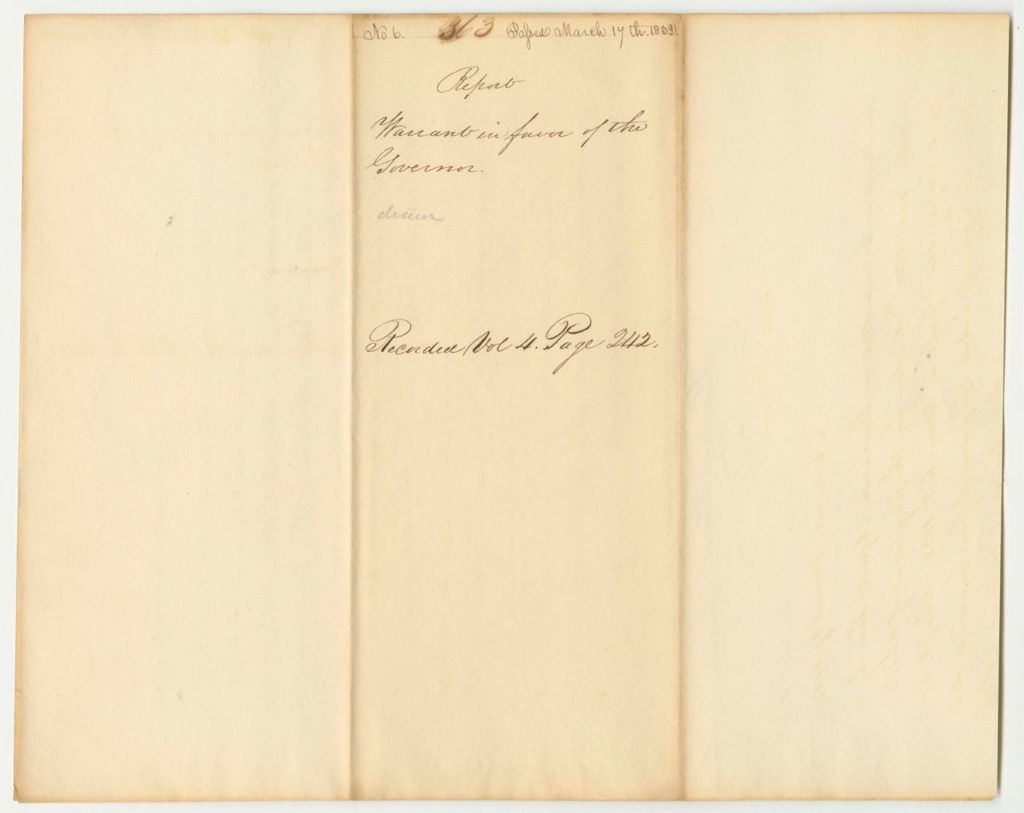 No 6. 363 Passed March 17th. 1832.
Report
Warrant in favor of the
Governor.
drawn
Recorded Vol 4. Page 242.